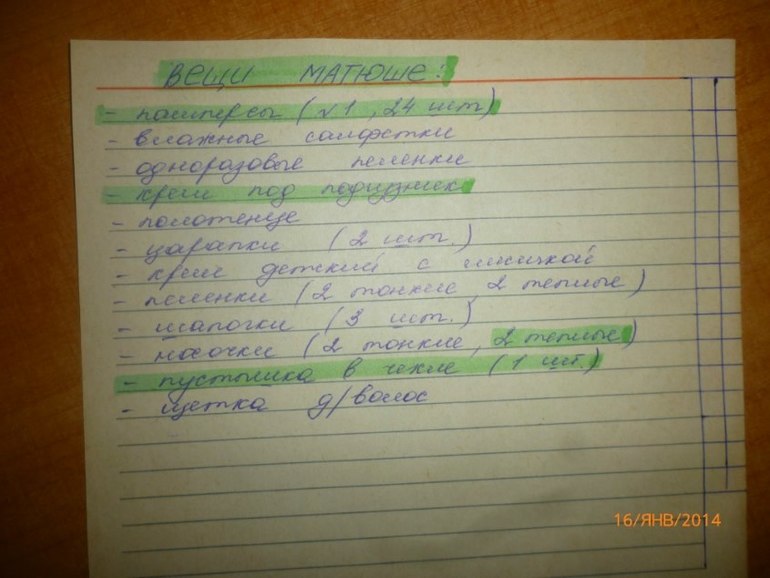 ВЕЩИ МАТЮШЕ:
- памперсы (√1, 24 шт)
- влажные салфетки
- одноразовые пеленки
- крем под подгузник
- полотенце
- царапки (2 шт.)
- крем детский с
- пеленки (2 тонкие, 2 теплые)
- шапочки (3 шт.)
- носочки (2 тонкие, 2 теплые)
- пустышка в чехле (1 шт.)
- щетка д/волос
16/ЯНВ/2014